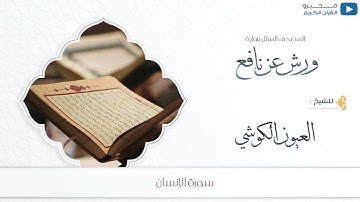 محبرو
القرآن الكريم
المصحف المرتل برواية
ورش عن نافع
للشيخ :
العيون الكوشي
سورة الإنسان